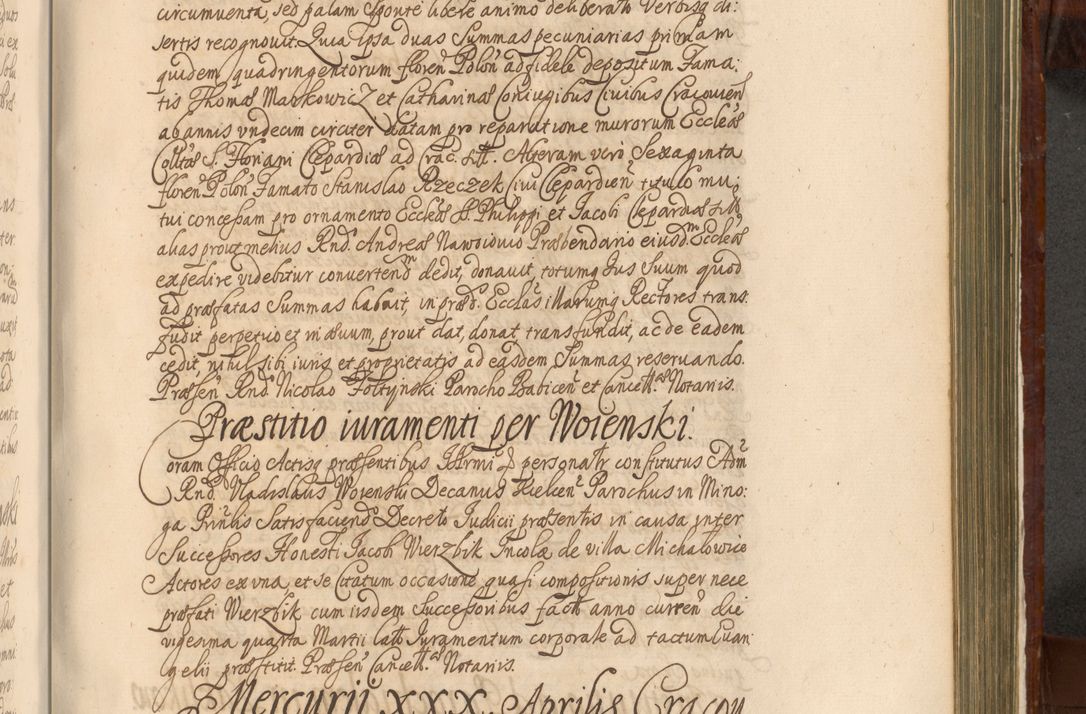 circumuenta, sed palam sponte libere animo deliberato Verbisq di:
sertis recognouit. Quia ipsa duas Summas pecuniarias primam
quidem quadringentorum floren Polon ad fidele depositum Fama:
tis Thomæ Markowicz et Catharinæ Coniugibus Ciuibus Cracouien
ab annis vndecim circiter datam pro reparatione murorum Eccleæ
Colltæ S. Floriani Clepardiæ ad Crac. sitt. Alteram vero Sexaginta
floren Polon Famato Stanislao Rzeczek Ciui Clepardien titulo mu:
tui concessam pro ornamento Eccleæ SS. Philippi et Jacobi Clepardiæ sitt.
alias prout melius Rnd. Andreæ Nawoiowio Præbendario eiusdm Eccleæ
expedire videbitur conuertendm dedit, donauit, totumq Jus Suum quod
ad præfatas Summas habuit, in præd. Ecclas illarumq Rectores trans:
fudit perpetuo et in æuum, prout dat, donat transfundit, ac de eadem
cedit, nihil sibi iuris et proprietatis ad easdem Summas reseruando.
Præsen Rnd. Nicolao Foltynski Parocho Babicen et Cancellæ Notariis.
Præstitio iuramenti per Woienski.
Coram Officio Actisq præsentibus personaltr constitutus Adm
Rnd. Vladislaus Woienski Decanus Kielcen Parochus in Mino:
ga Prinlis Satisfaciend Decreto Judicii præsentis in causa inter
Successores Honesti Jacobi Wierzbik Incolæ de villa Michałowice
Actores ex vna, et se Citatum occasione quasi compositionis super nece
præfati Wierzbik cum iisdem Successoribus fact anno curren die
vigesima quarta Martii lato Juramentum corporale ad tactum Euan:
gelii præstitit. Præsen Cancellæ Notariis.
Mercurii XXX. Aprilis Cracou